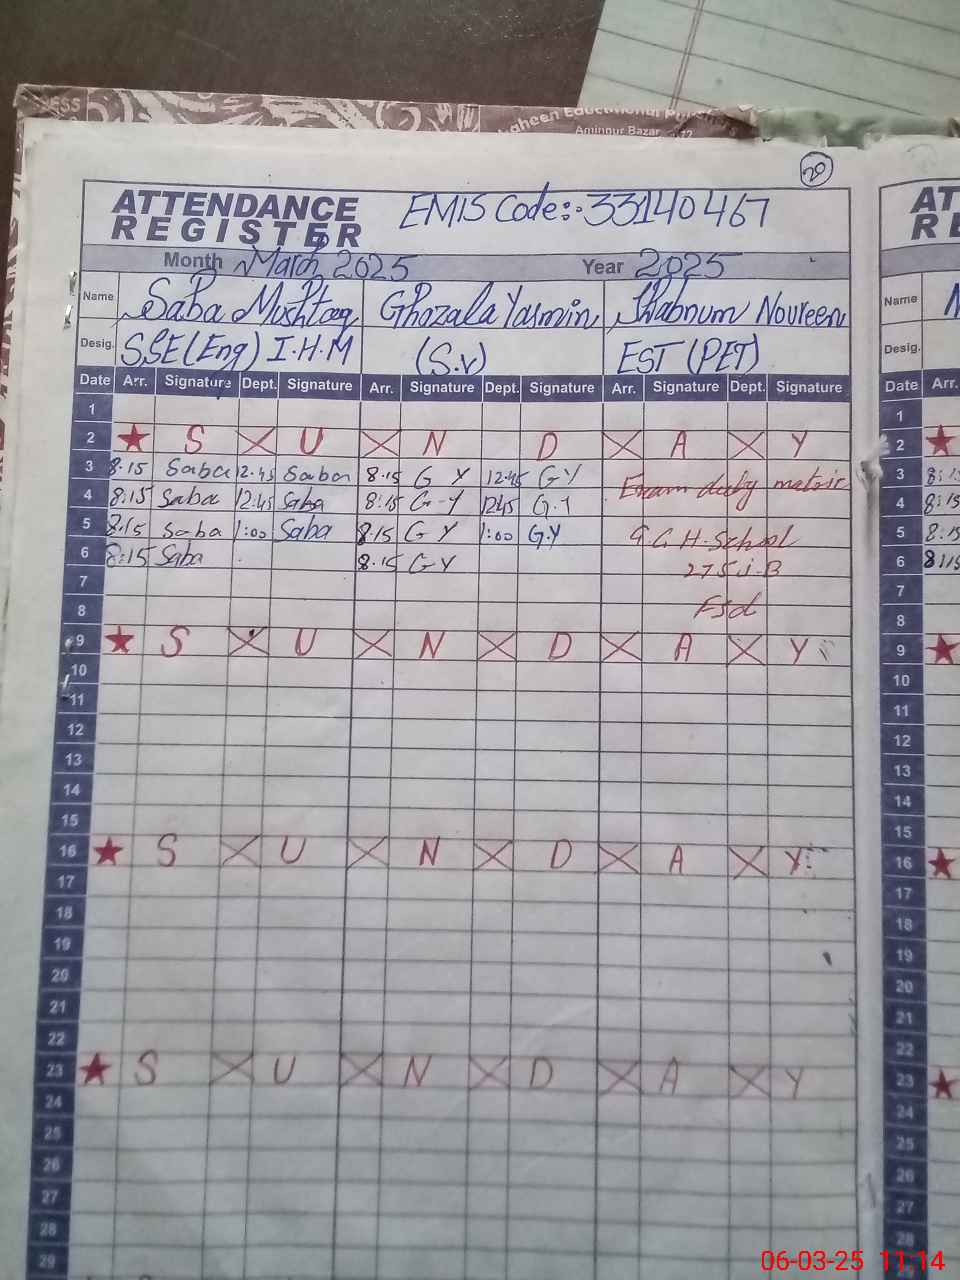 Shaheen Educational
Aminpur Bazar
20
ATTENDANCE REGISTER EMIS Code:- 33140467
Month March 2025 Year 2025
Name Saba Mushtaq Ghazala Yasmin Shabnum Noureen
Desig. SSE(Eng) I.H.M (S.V) EST (PET)
Date Arr. Signature Dept. Signature Arr. Signature Dept. Signature Arr. Signature Dept. Signature Date Arr.
1 1
2 ★ S U N D A Y 2 ★
3 8.15 Saba 12.45 Saba 8.15 G Y 12.45 G Y Exam duty matric 3 8:15
4 8:15 Saba 12:45 Saba 8:15 G-Y 1245 G.Y 4 8:15
5 8:15 Saba 1:00 Saba 8.15 G Y 1:00 G.Y G.G.H.School 5 8:15
6 8:15 Saba 8.15 G Y 275 J.B 6 8:15
7 7
8 Fsd 8
9 ★ S U N D A Y 9 ★
10 10
11 11
12 12
13 13
14 14
15 15
16 ★ S U N D A Y 16 ★
17 17
18 18
19 19
20 20
21 21
22 22
23 ★ S U N D A Y 23 ★
24 24
25 25
26 26
27 27
28 28
29
06-03-25 11:14